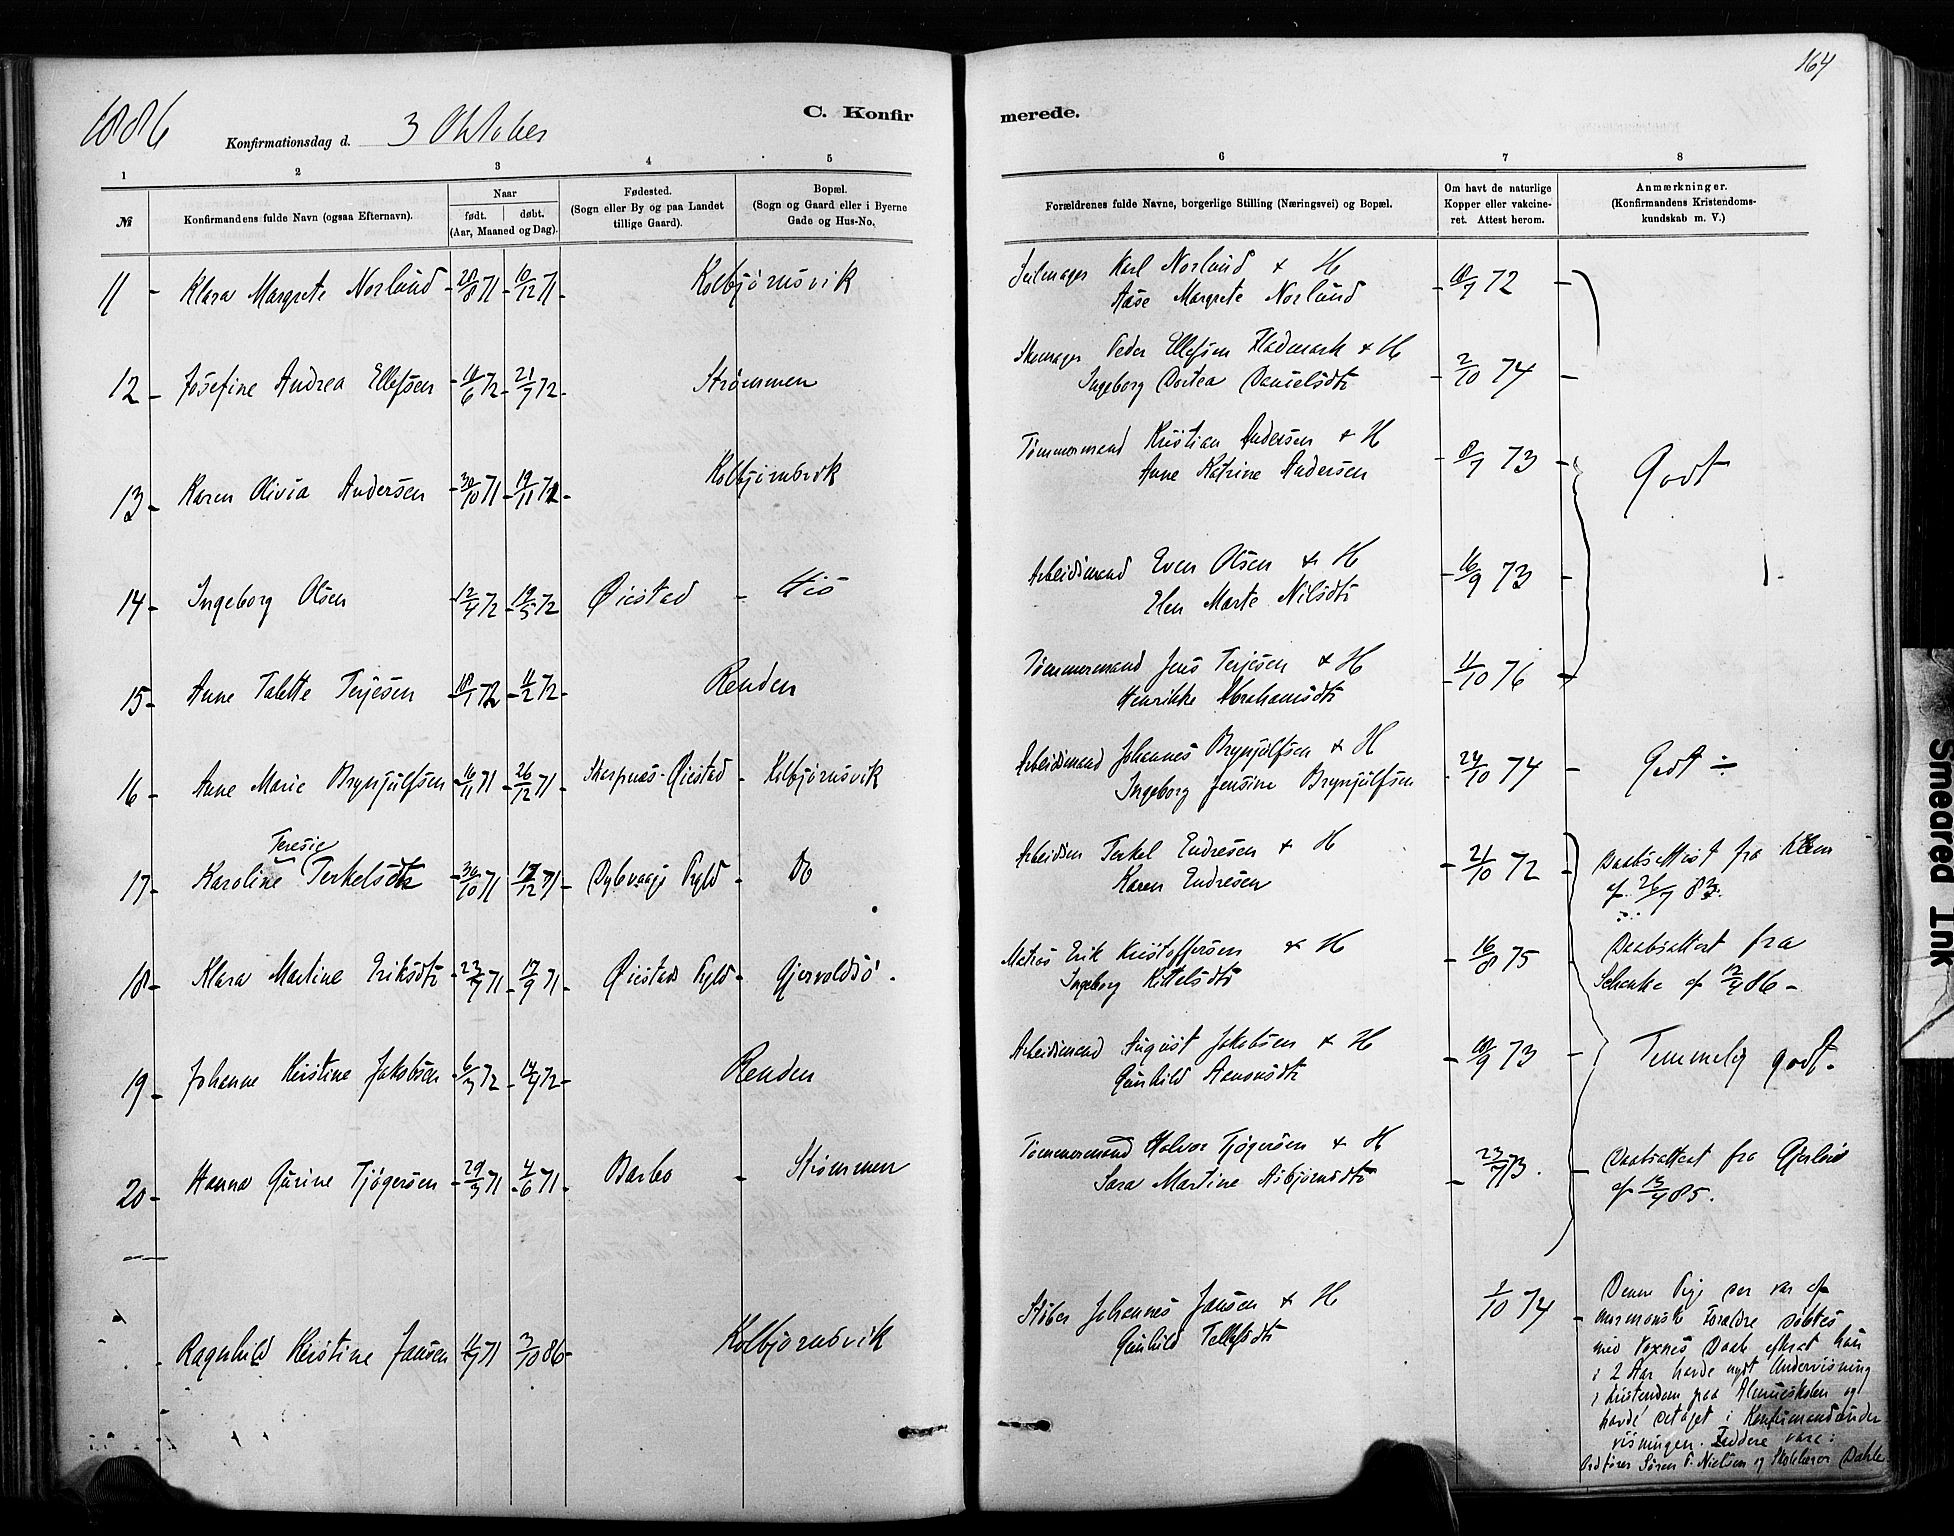 164
1886
Konfirmationsdag d. 3 Oktober
C. Konfirmerede.
1 2 3 4 5 6 7 8
№
Konfirmandens fulde Navn (ogsaa Efternavn).
Naar
født. døbt.
(Aar, Maaned og Dag).
Fødested.
(Sogn eller By og paa Landet
tillige Gaard).
Bopæl.
(Sogn og Gaard eller i Byerne
Gade og Hus-No.
Forældrenes fulde Navne, borgerlige Stilling (Næringsvei) og Bopæl.
Om havt de naturlige
Kopper eller vakcine-
ret. Attest herom.
Anmærkninger.
(Konfirmandens Kristendoms-
kundskab m. V.)
11 - Klara Margrete Norlund - 28/8 71 - 10/12 71 - Kolbjørnsvik Seilmager Karl Norlund & H - 10/7 72 -
Aase Margrete Norlund
12 - Josefine Andrea Ellefsen - 11/6 72 - 21/7 72 - Strømmen Skomager Peder Ellefsen Flademark & H - 2/10 74 -
Ingeborg Dortea Danielsdtr
13 - Karen Olivia Andersen - 30/10 71 - 19/11 71 - Kolbjørnsvik Tømmermand Kristian Andersen & H - 8/7 73 - Godt
Anne Katrine Andersen
14 - Ingeborg Olsen - 12/4 72 - 19/5 72 Øiestad - His Arbeidsmand Even Olsen & H - 16/9 73 -
Elen Marte Nilsdtr
15 - Anne Talette Terjesen - 18/1 72 - 11/2 72 - Renden Tømmermand Jens Terjesen & H - 11/10 76 -
Henrikke Abrahamsdtr
16 - Anne Marie Brynjulfsen - 16/11 71 - 26/12 71 - Skarpnæs - Øiestad - Kolbjørnsvik Arbeidsmand Johannes Brynjulfsen & H - 24/10 74 - Godt ÷
Ingeborg Jensine Brynjulfsen
Teresie
17 - Karoline Terkelsdtr - 30/10 71 - 17/12 71 - Dybvaags Pgld - Do Arbeidsm Terkel Endresen & H - 21/10 72 - Daabsattest fra Klem
Karen Endresen af 26/7 83.
18 - Klara Martine Eriksdtr - 23/7 71 - 17/9 71 - Øiestads Pgld - Gjervoldsø - Matros Erik Kristoffersen & H - 16/8 75 - Daabsattest fra
Ingeborg Kittelsdtr Schenke af 12/4 86 -
19 - Johanne Kristine Jakobsen - 6/3 72 - 14/4 72 - Renden Arbeidsmand August Jakobsen & H - 10/9 73 - Temmelig godt.
Gunhild Aanonsdtr
20 - Hanna Gurine Tjøgersen - 29/3 71 - 4/6 71 - Barbo - Strømmen Tømmermand Halvor Tjøgersen & H - 23/7 73 - Daabsattest fra
Sara Martine Asbjørnsdtr af 13/4 85.
Ragnhild Kristine Jansen 11/7 71 - 3/10 86 - Kolbjørnsvik Støber Johannes Jansen & H 2/10 74 - Denne Pige der var af
Gunhild Tellefsdtr mormonske Forældre døbtes
med Voxnes Daab efterat hun
i 2 Aar havde nydt Undervisning
i Kristendom paa Almueskolen og
havde deltaget i Konfirmandunder
visningen. Faddere vare:
Ordfører Søren P. Nielsen og Skolelærer Dahle
Smeared Ink